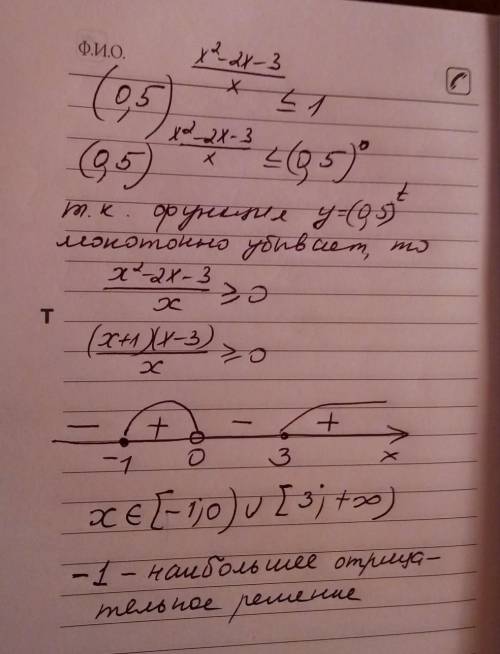 Ф.И.О.
(0,5)^((x²-2x-3)/x) ≤ 1
(0,5)^((x²-2x-3)/x) ≤ (0,5)⁰
т.к. функция y=(0,5)^t
монотонно убывает, то
(x²-2x-3)/x ≥ 0
Т
((x+1)(x-3))/x ≥ 0
− + − +
-1 0 3 x
x ∈ [-1;0) ∪ [3; +∞)
-1 - наибольшее отрица-
тельное решение